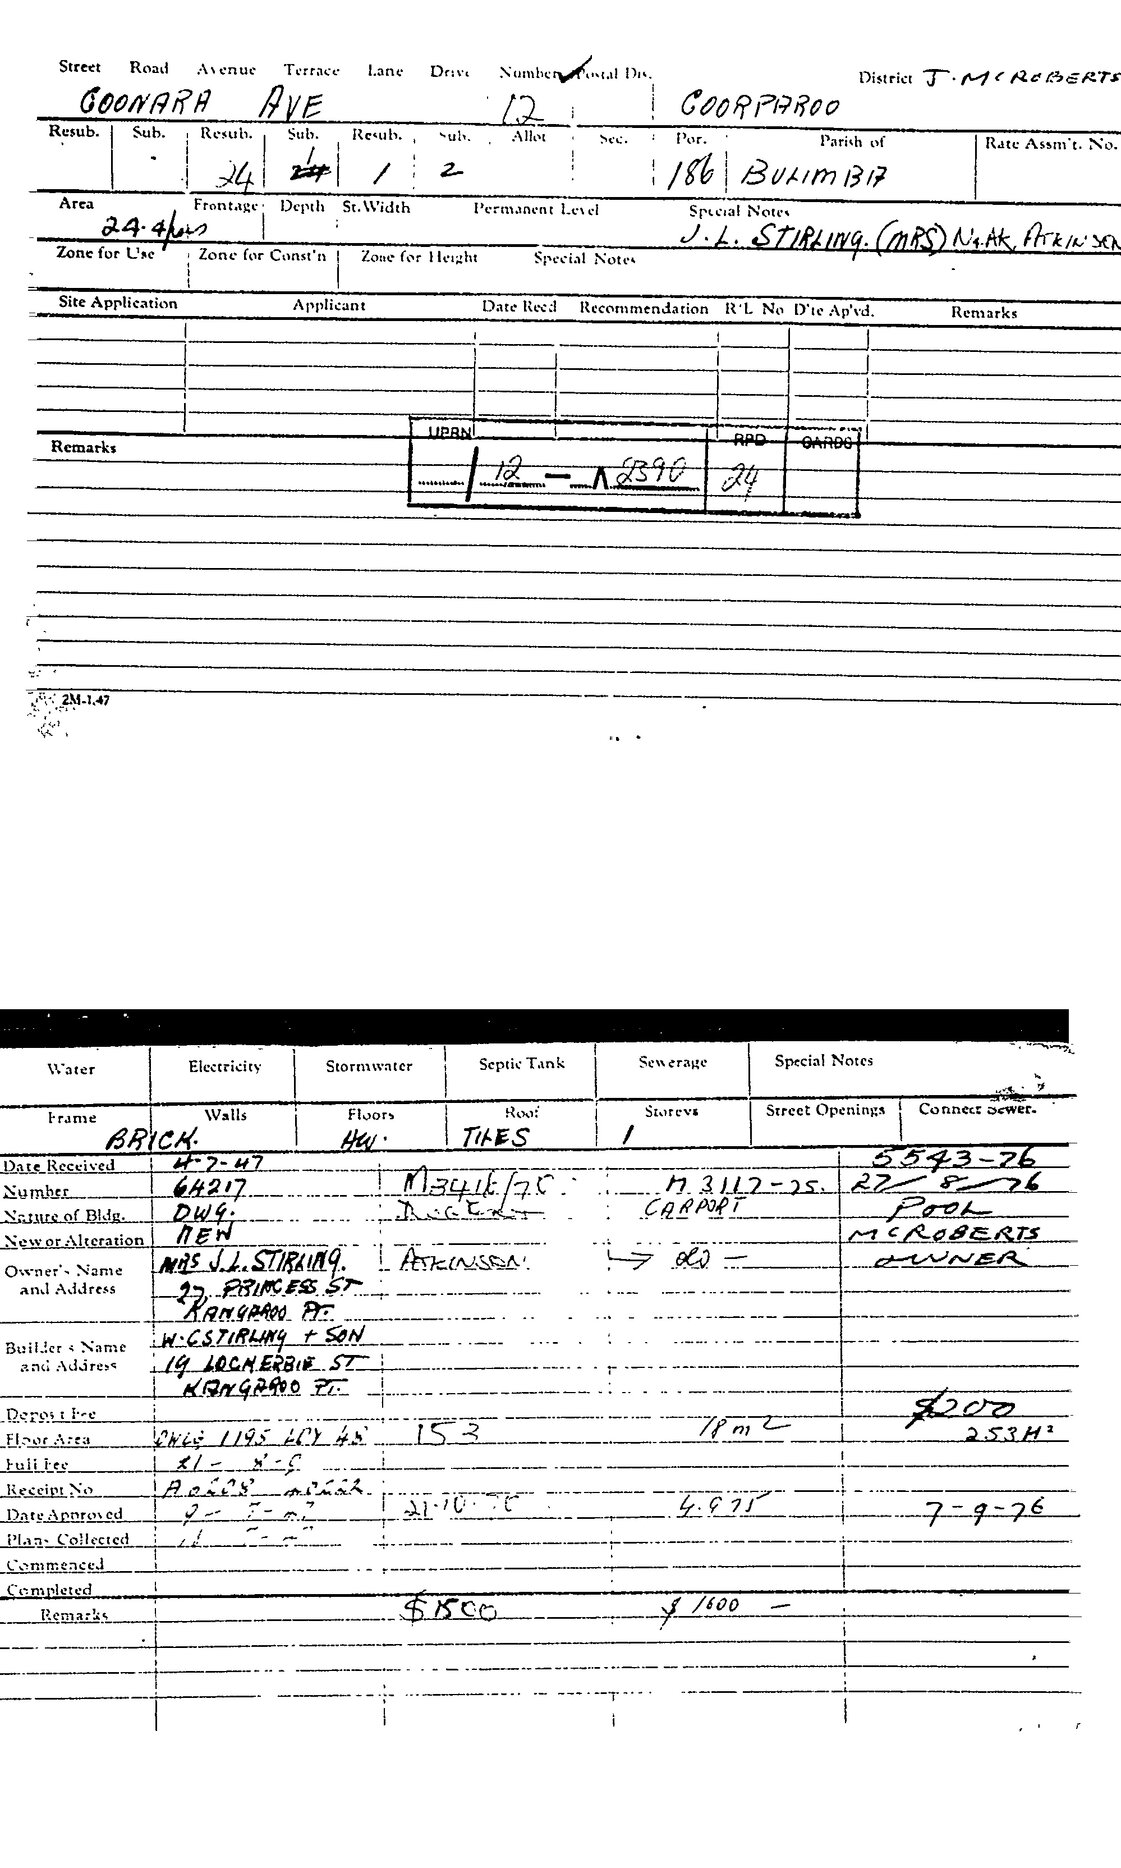 Street Road Avenue Terrace Lane Drive Number Postal Dis. District J. MCROBERTS
COONARA AVE 12 COORPAROO
Resub. Sub. Resub. Sub. Resub. Sub. Allot Sec. Por. Parish of Rate Assm't. No.
24 1 1 2 186 BULIMBA
Area Frontage Depth St.Width Permanent Level Special Notes
24.4 J. L. STIRLING. (MRS) ATKINSON
Zone for Use Zone for Const'n Zone for Height Special Notes
Site Application Applicant Date Recd Recommendation R'L No D'te Ap'vd. Remarks
Remarks UPRN RPD CARDS
/ 12 — 2390 24
2M-1.47
Water Electricity Stormwater Septic Tank Sewerage Special Notes
Frame Walls Floors Roof Storeys Street Openings Connect Sewer.
BRICK. HW. TILES 1
Date Received 4-7-47 5543-76
Number 64217 M 3117-75. 27/8/76
Nature of Bldg. DWG. CARPORT POOL
New or Alteration NEW MCROBERTS
Owner's Name MRS J.L. STIRLING. ATKINSON. DO — OWNER
and Address 27, PRINCESS ST
KANGAROO PT.
Builder's Name W.C STIRLING + SON
and Address 19 LOCHERBIE ST
KANGAROO PT.
Deposit Fee $200
Floor Area 1195 153 18 m2 253 M²
Full Fee
Receipt No
Date Approved 4.9 75 7-9-76
Plans Collected
Commenced
Completed
Remarks $1500 $1600 —